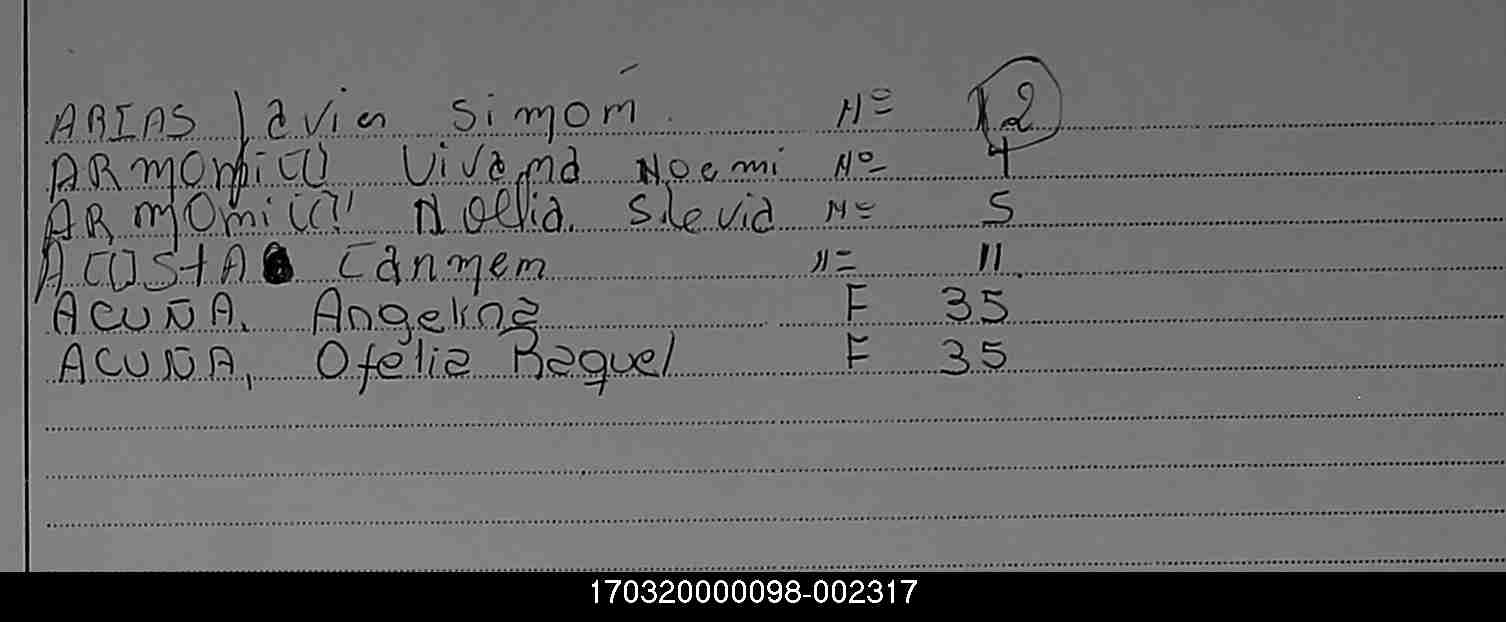 ARIAS Javier Simón Nº 12
ARMOMICO Viviana Noemi Nº 4
ARMOMICO Noelia Silevia Nº 5
ACOSTA Carmem Nº 11
ACUÑA, Angelina F 35
ACUÑA, Ofelia Raquel F 35
170320000098-002317